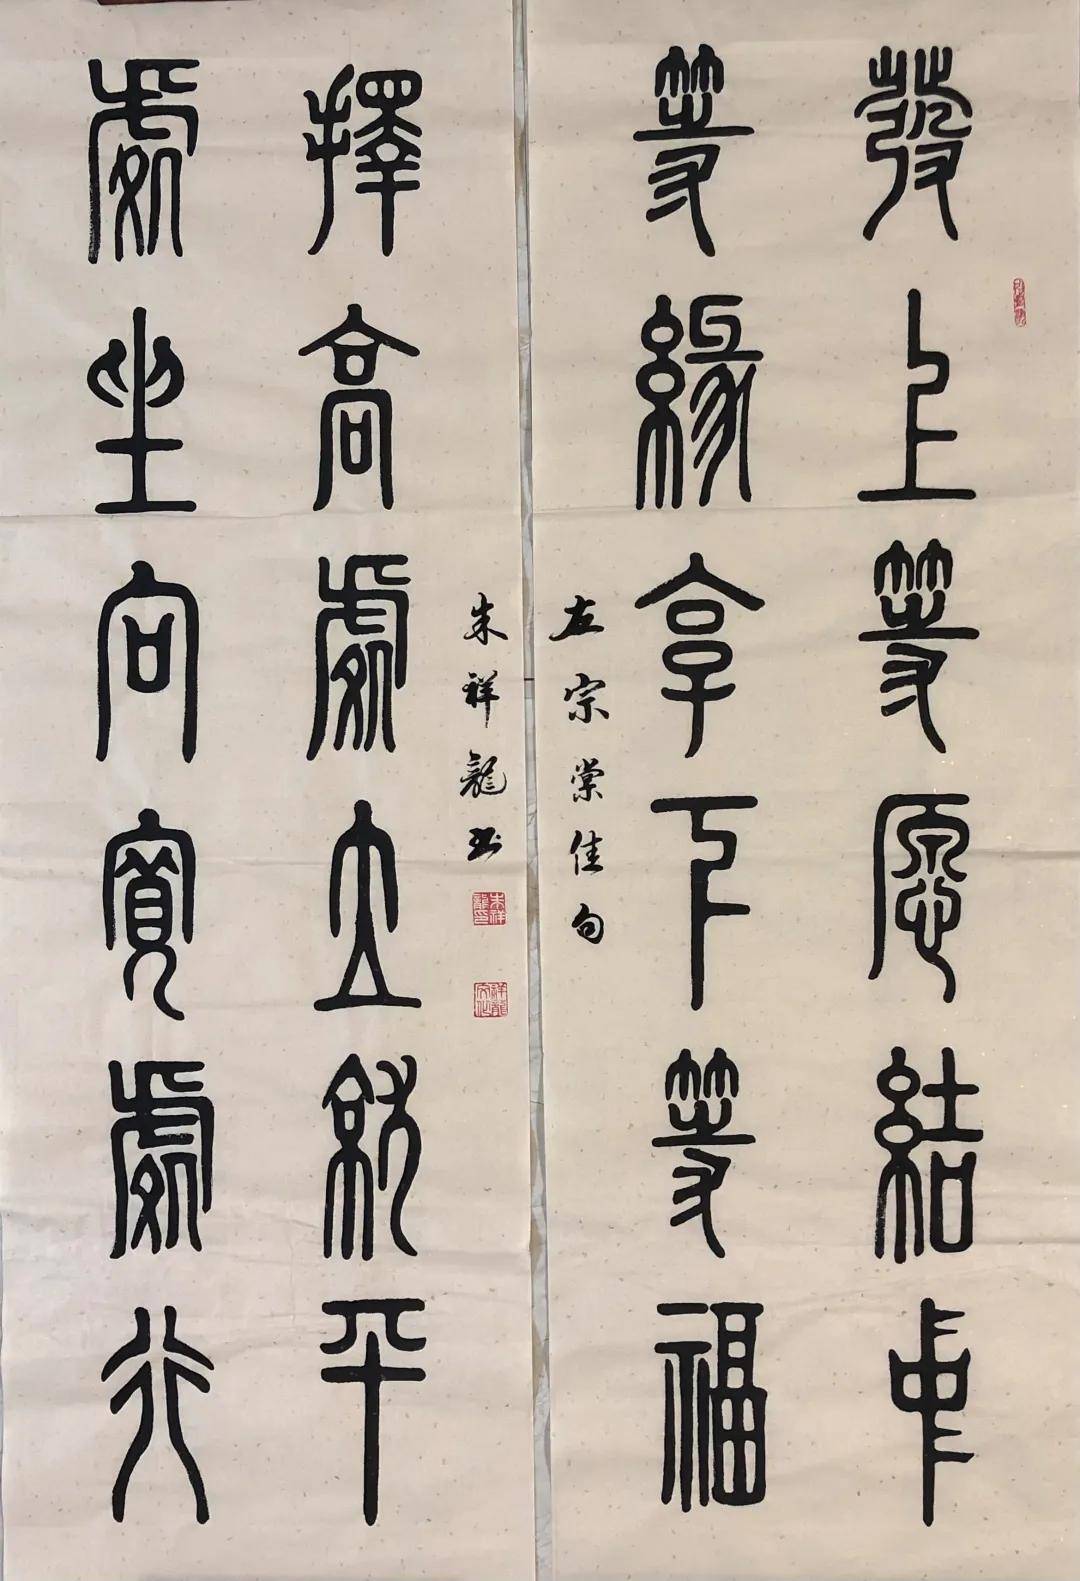 發上等愿結中
等緣享下等福
左宗棠佳句
擇高處立就平
處坐向寬處行
朱祥龍书
朱祥龍印